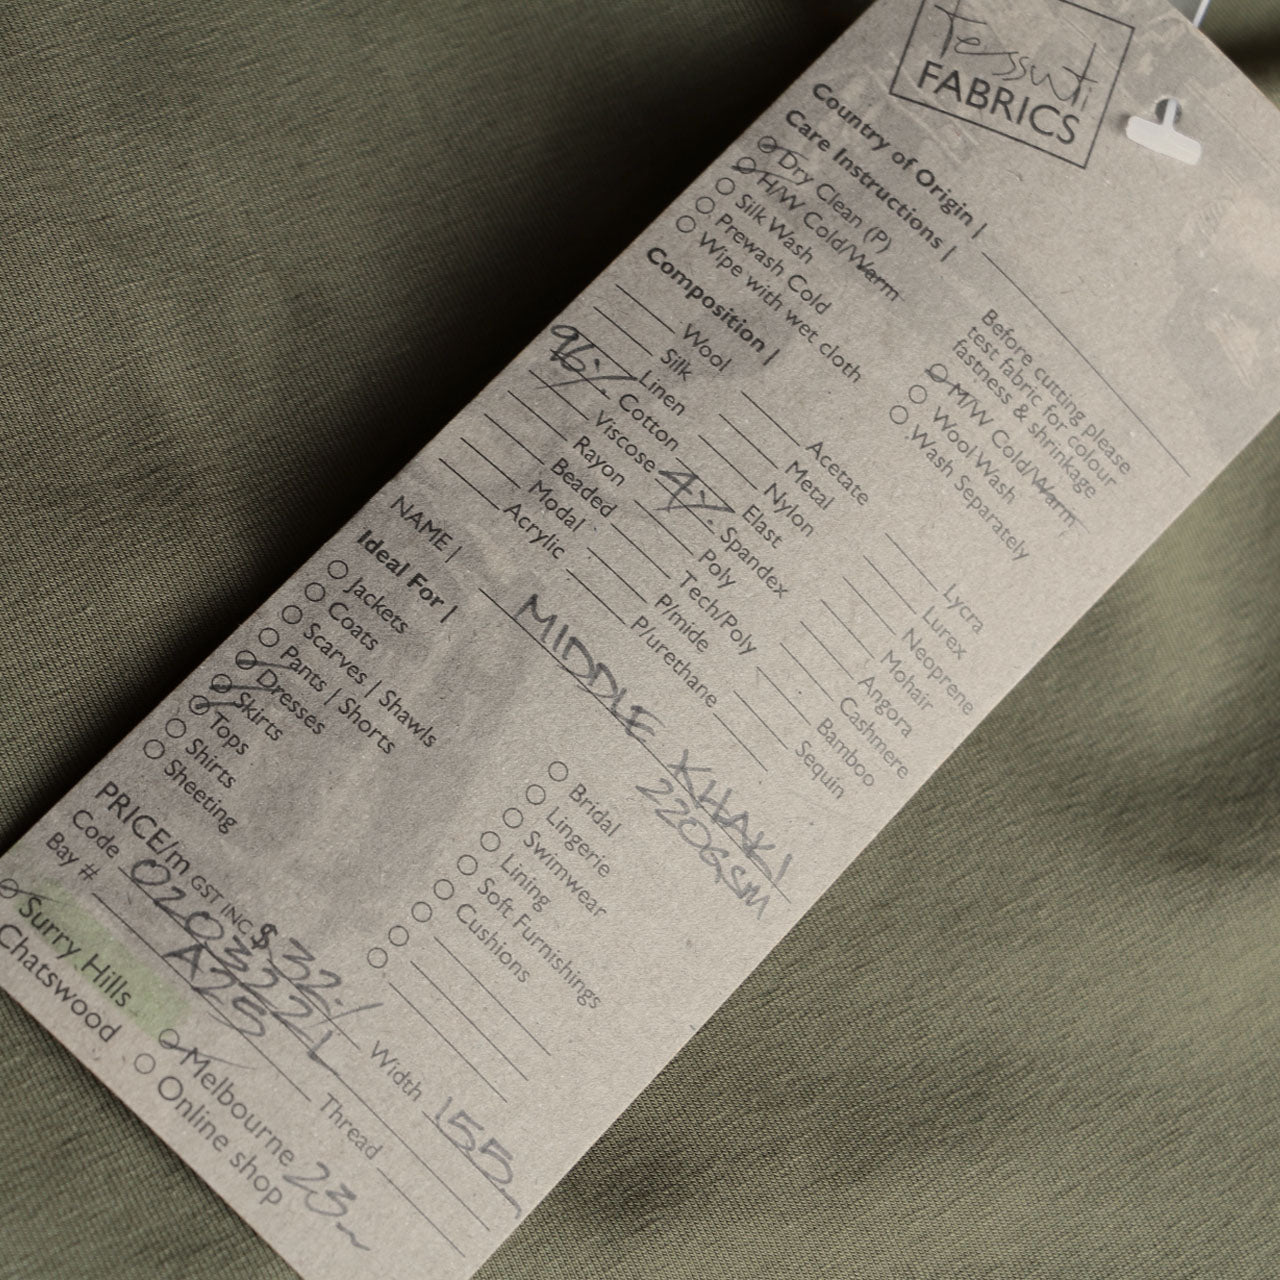 Tessuti
FABRICS
Country of Origin |
Care Instructions |
Dry Clean (P)
H/W Cold/Warm
Silk Wash
Prewash Cold
Wipe with wet cloth
Before cutting please
test fabric for colour
fastness & shrinkage
M/W Cold/Warm
Wool Wash
Wash Separately
Composition |
Wool
Silk
Linen
96% Cotton
Viscose
Rayon
Beaded
Modal
Acrylic
Acetate
Metal
Nylon
Elast
4% Spandex
Poly
Tech/Poly
P/mide
P/urethane
Lycra
Lurex
Neoprene
Mohair
Angora
Cashmere
Bamboo
Sequin
NAME | MIDDLE KHAKI
220GSM
Ideal For |
Jackets
Coats
Scarves | Shawls
Pants | Shorts
Dresses
Skirts
Tops
Shirts
Sheeting
Bridal
Lingerie
Swimwear
Lining
Soft Furnishings
Cushions
PRICE/m GST INC $32.-/
Width 155
Code 0203221
Thread
Bay # A25
Surry Hills
Chatswood
Melbourne 23m
Online shop